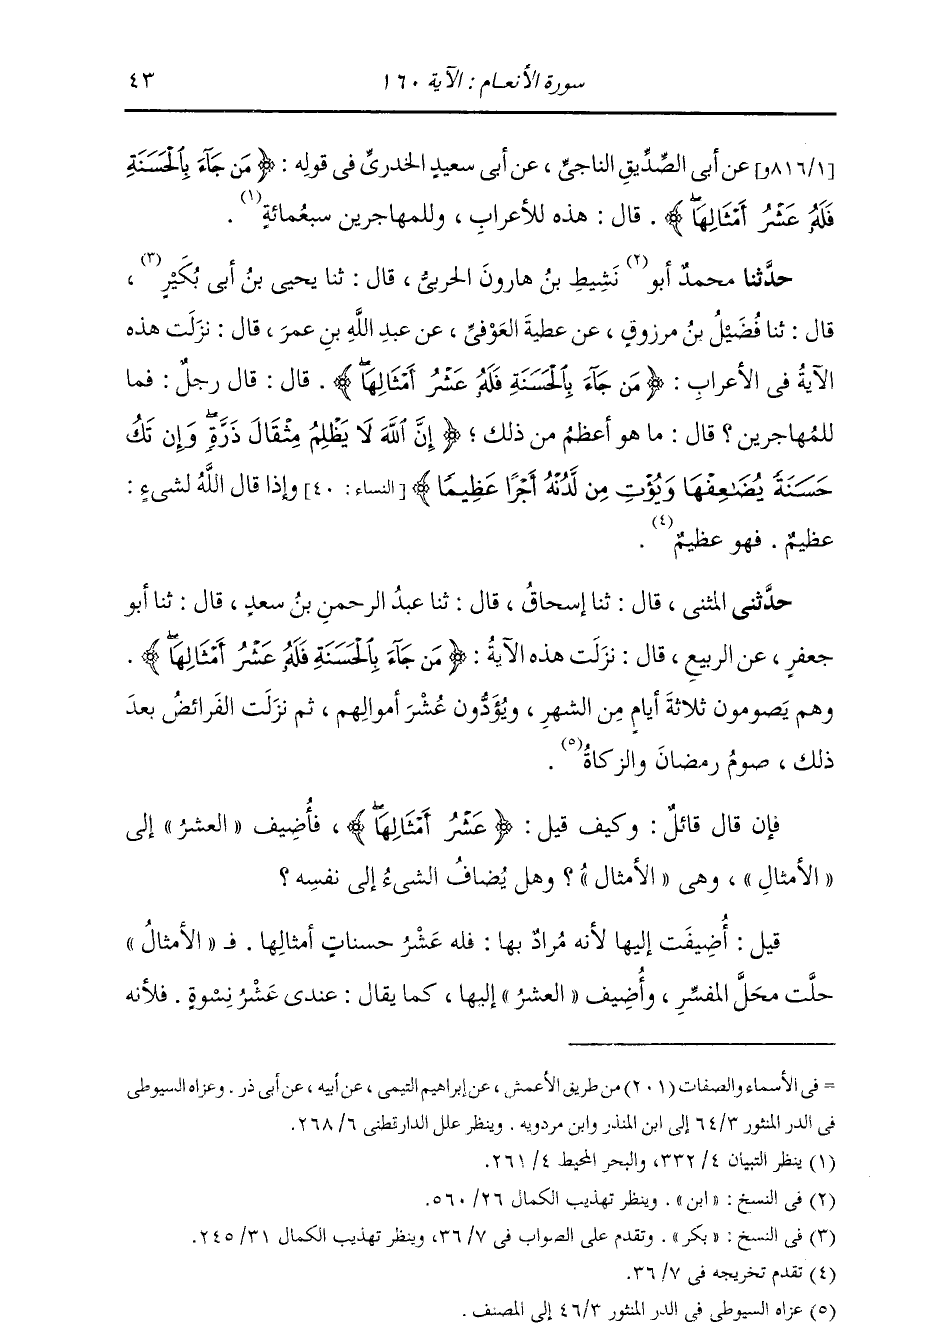 سورة الأنعام : الآية ١٦٠ ٤٣
[٨١٦/١و] عن أبى الصِّدِّيقِ الناجىِّ ، عن أبى سعيدٍ الخدرىِّ فى قولِه : ﴿ مَن جَآءَ بِٱلْحَسَنَةِ
فَلَهُۥ عَشْرُ أَمْثَالِهَاۖ ﴾ . قال : هذه للأعرابِ ، وللمهاجرين سبعُمائةٍ(١) .
حدَّثنا محمدٌ أبو(٢) نَشِيطِ بنُ هارونَ الحربىُّ ، قال : ثنا يحيى بنُ أبى بُكَيْرٍ(٣) ،
قال : ثنا فُضَيْلُ بنُ مرزوقٍ ، عن عطيةَ العَوْفىِّ ، عن عبدِ اللَّهِ بنِ عمرَ ، قال : نزَلَت هذه
الآيةُ فى الأعرابِ : ﴿ مَن جَآءَ بِٱلْحَسَنَةِ فَلَهُۥ عَشْرُ أَمْثَالِهَاۖ ﴾ . قال : قال رجلٌ : فما
للمُهاجرين ؟ قال : ما هو أعظمُ من ذلك ؛ ﴿ إِنَّ ٱللَّهَ لَا يَظْلِمُ مِثْقَالَ ذَرَّةٍۖ وَإِن تَكُ
حَسَنَةً يُضَٰعِفْهَا وَيُؤْتِ مِن لَّدُنْهُ أَجْرًا عَظِيمًا ﴾ [النساء : ٤٠] وإذا قال اللَّهُ لشىءٍ :
عظيمٌ . فهو عظيمٌ(٤) .
حدَّثنى المثنى ، قال : ثنا إسحاقُ ، قال : ثنا عبدُ الرحمنِ بنُ سعدٍ ، قال : ثنا أبو
جعفرٍ ، عن الربيعِ ، قال : نزَلَت هذه الآيةُ : ﴿ مَن جَآءَ بِٱلْحَسَنَةِ فَلَهُۥ عَشْرُ أَمْثَالِهَاۖ ﴾ .
وهم يَصومون ثلاثةَ أيامٍ مِن الشهرِ ، ويُؤَدُّون عُشْرَ أموالِهم ، ثم نزَلَت الفَرائضُ بعدَ
ذلك ، صومُ رمضانَ والزكاةُ(٥) .
فإن قال قائلٌ : وكيف قيل : ﴿ عَشْرُ أَمْثَالِهَاۖ ﴾ ، فأُضِيف « العشرُ » إلى
« الأمثالِ » ، وهى « الأمثال »ُ ؟ وهل يُضافُ الشىءُ إلى نفسِه ؟
قيل : أُضِيفَت إليها لأنه مُرادٌ بها : فله عَشْرُ حسناتٍ أمثالِها . فـ « الأمثالُ »
حلَّت محَلَّ المفسِّرِ ، وأُضِيف « العشرُ » إليها ، كما يقال : عندى عَشْرُ نِسْوةٍ . فلأنه
= فى الأسماء والصفات (٢٠١) من طريق الأعمش ، عن إبراهيم التيمى ، عن أبيه ، عن أبى ذر . وعزاه السيوطى
فى الدر المنثور ٦٤/٣ إلى ابن المنذر وابن مردويه . وينظر علل الدارقطنى ٦/ ٢٦٨.
(١) ينظر التبيان ٤/ ٣٣٢، والبحر المحيط ٤/ ٢٦١.
(٢) فى النسخ : « ابن » . وينظر تهذيب الكمال ٢٦/ ٥٦٠.
(٣) فى النسخ : « بكر » . وتقدم على الصواب فى ٧/ ٣٦، وينظر تهذيب الكمال ٣١/ ٢٤٥.
(٤) تقدم تخريجه فى ٧/ ٣٦.
(٥) عزاه السيوطى فى الدر المنثور ٤٦/٣ إلى المصنف .